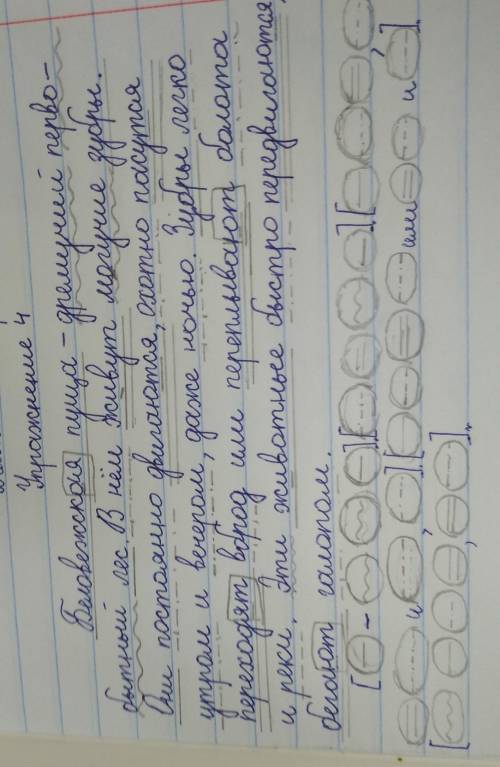 Упражнение 4
Беловежская пуща - дремучий перво-
бытный лес. В нём живут могучие зубры.
Они постоянно двигаются, охотно пасутся
утром и вечером, даже ночью. Зубры легко
переходят вброд или переплывают болота
и реки. Эти животные быстро передвигаются,
бегают галопом.
[ - ][ ][ ,
и ][ или и ]
[ , ].